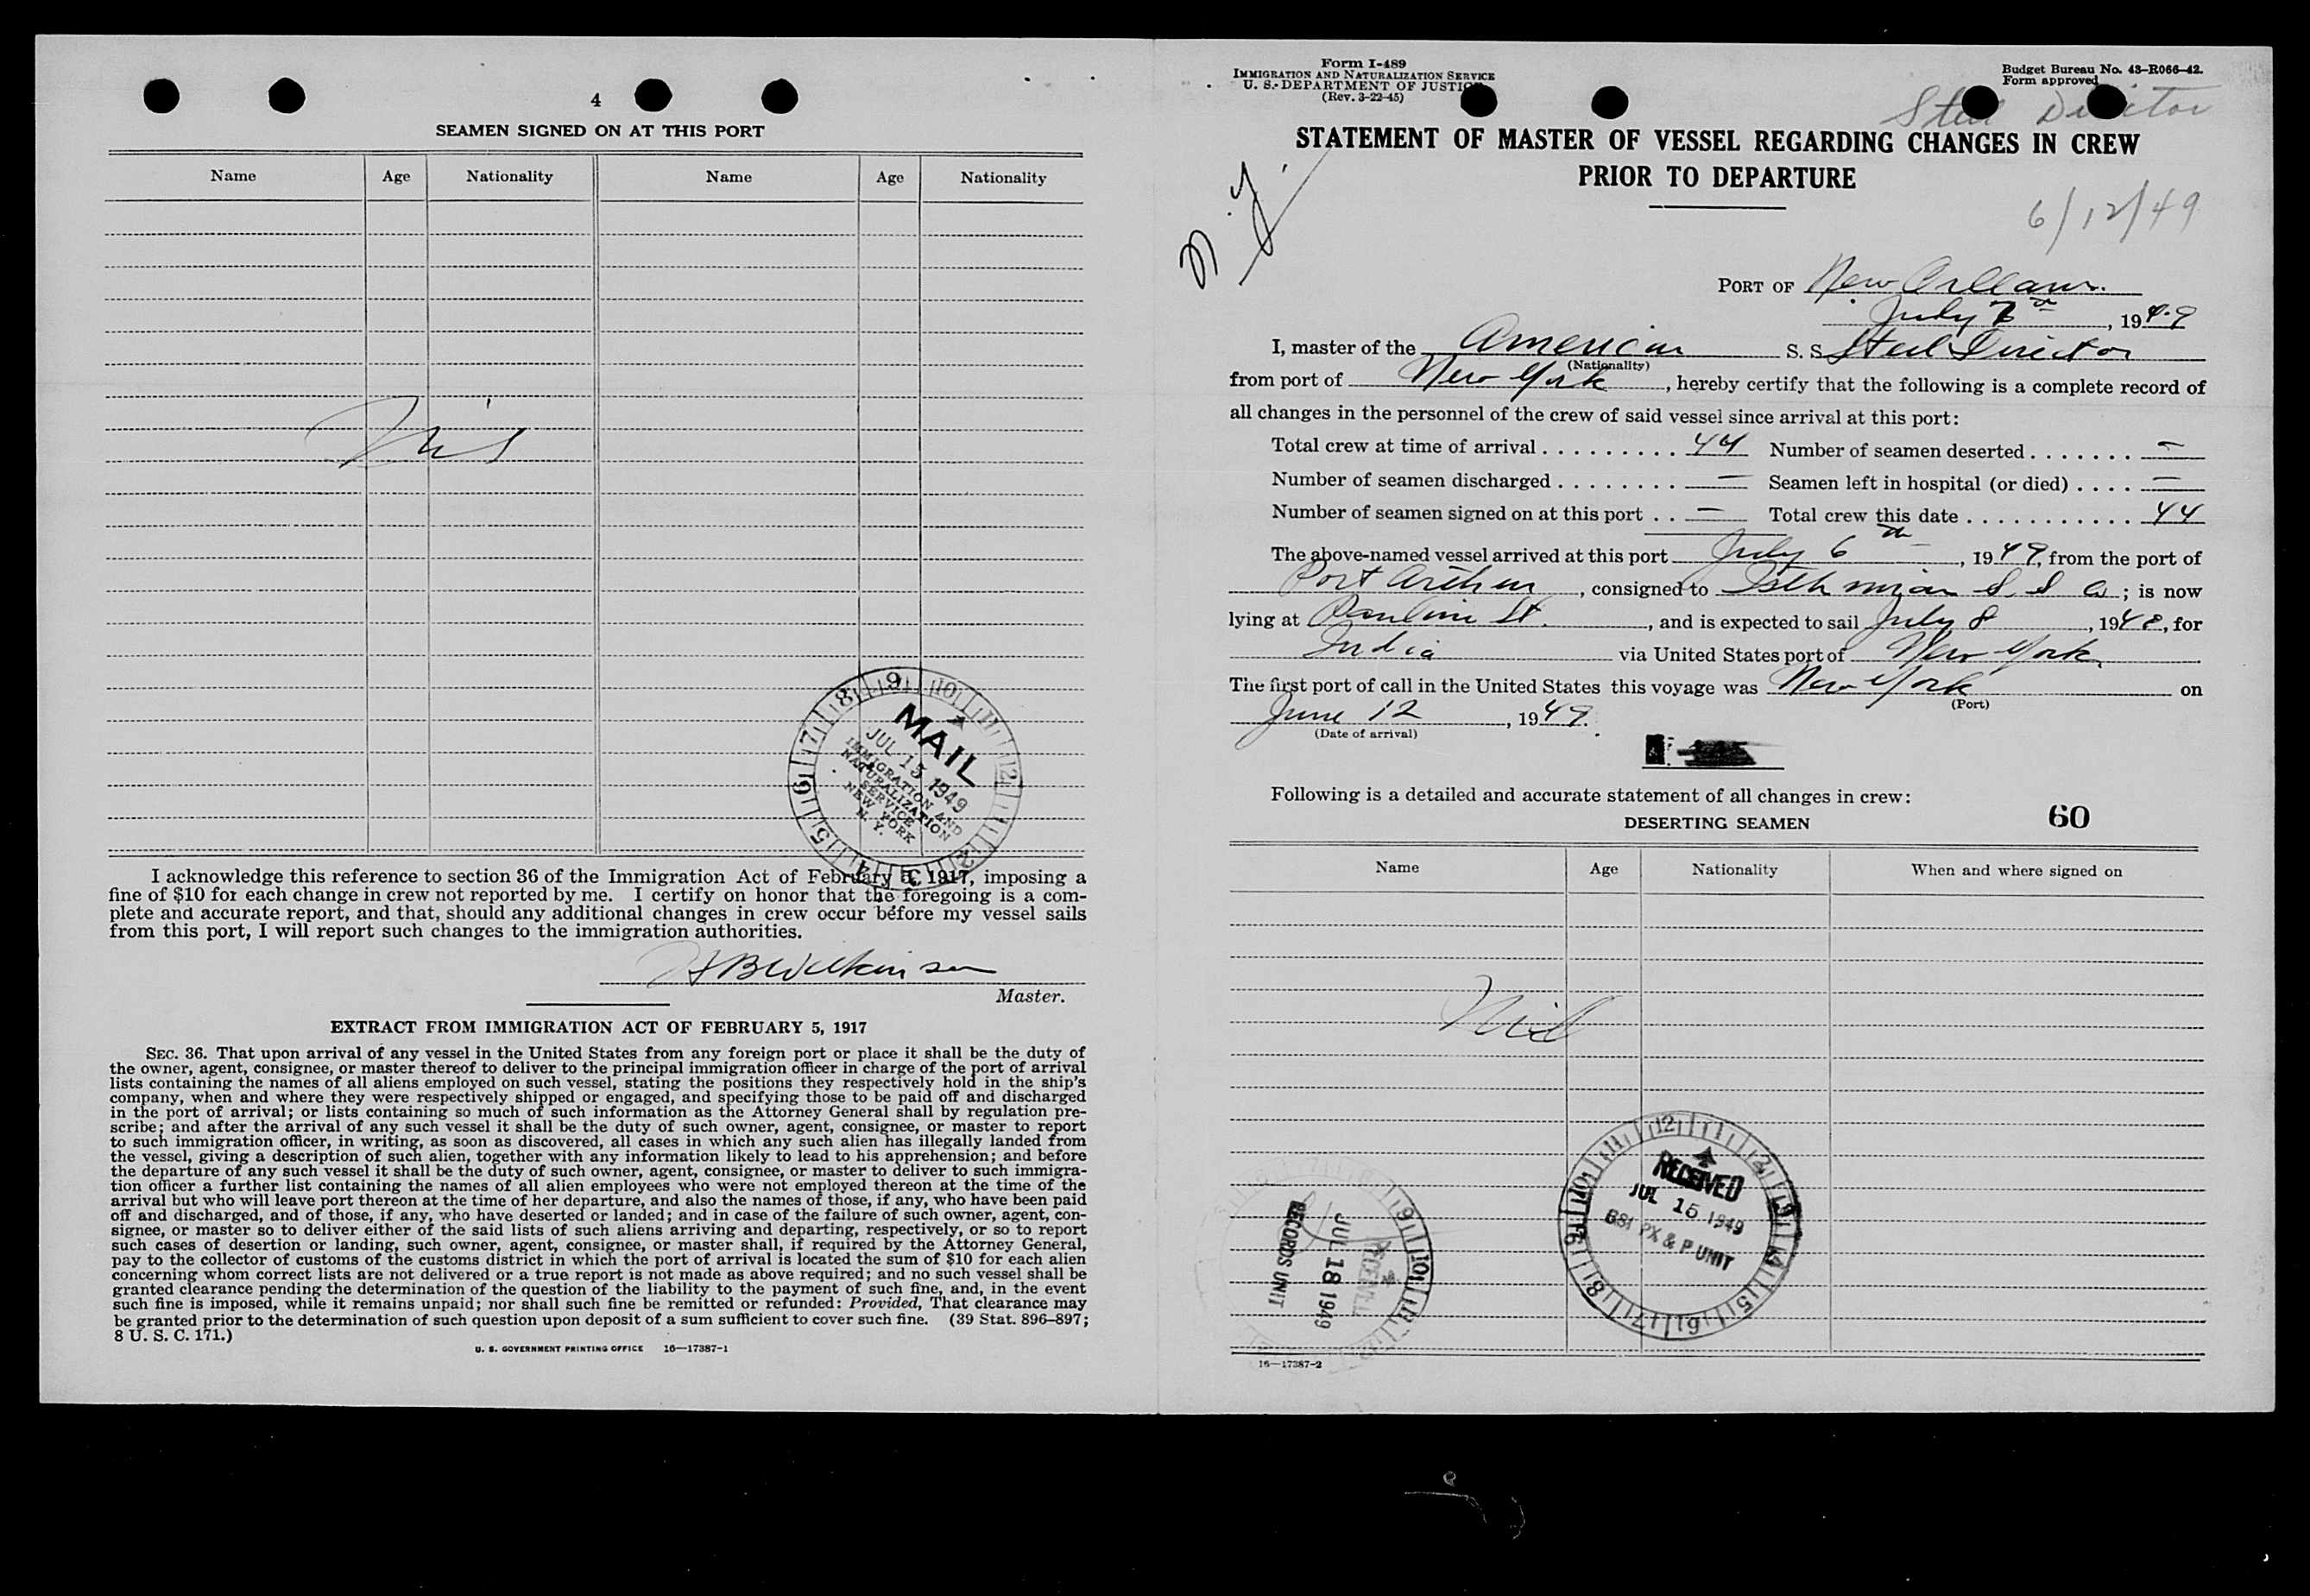 4
SEAMEN SIGNED ON AT THIS PORT
Name Age Nationality Name Age Nationality
Nil
MAIL
JUL 15 1949
IMMIGRATION AND
NATURALIZATION
SERVICE
NEW YORK
N. Y.
I acknowledge this reference to section 36 of the Immigration Act of February 5, 1917, imposing a
fine of $10 for each change in crew not reported by me. I certify on honor that the foregoing is a com-
plete and accurate report, and that, should any additional changes in crew occur before my vessel sails
from this port, I will report such changes to the immigration authorities.
HB Wilkinson
Master.
EXTRACT FROM IMMIGRATION ACT OF FEBRUARY 5, 1917
SEC. 36. That upon arrival of any vessel in the United States from any foreign port or place it shall be the duty of
the owner, agent, consignee, or master thereof to deliver to the principal immigration officer in charge of the port of arrival
lists containing the names of all aliens employed on such vessel, stating the positions they respectively hold in the ship's
company, when and where they were respectively shipped or engaged, and specifying those to be paid off and discharged
in the port of arrival; or lists containing so much of such information as the Attorney General shall by regulation pre-
scribe; and after the arrival of any such vessel it shall be the duty of such owner, agent, consignee, or master to report
to such immigration officer, in writing, as soon as discovered, all cases in which any such alien has illegally landed from
the vessel, giving a description of such alien, together with any information likely to lead to his apprehension; and before
the departure of any such vessel it shall be the duty of such owner, agent, consignee, or master to deliver to such immigra-
tion officer a further list containing the names of all alien employees who were not employed thereon at the time of the
arrival but who will leave port thereon at the time of her departure, and also the names of those, if any, who have been paid
off and discharged, and of those, if any, who have deserted or landed; and in case of the failure of such owner, agent, con-
signee, or master so to deliver either of the said lists of such aliens arriving and departing, respectively, or so to report
such cases of desertion or landing, such owner, agent, consignee, or master shall, if required by the Attorney General,
pay to the collector of customs of the customs district in which the port of arrival is located the sum of $10 for each alien
concerning whom correct lists are not delivered or a true report is not made as above required; and no such vessel shall be
granted clearance pending the determination of the question of the liability to the payment of such fine, and, in the event
such fine is imposed, while it remains unpaid; nor shall such fine be remitted or refunded: Provided, That clearance may
be granted prior to the determination of such question upon deposit of a sum sufficient to cover such fine. (39 Stat. 896–897;
8 U. S. C. 171.)
U. S. GOVERNMENT PRINTING OFFICE 16—17387-1
Form I-489
IMMIGRATION AND NATURALIZATION SERVICE
U. S. DEPARTMENT OF JUSTICE
(Rev. 3-22-45)
Budget Bureau No. 43–R066–42.
Form approved
Steel Director
STATEMENT OF MASTER OF VESSEL REGARDING CHANGES IN CREW
PRIOR TO DEPARTURE
N.Y.
6/12/49
PORT OF New Orleans
July 7th, 1949
I, master of the American S. S. Steel Director
(Nationality)
from port of New York, hereby certify that the following is a complete record of
all changes in the personnel of the crew of said vessel since arrival at this port:
Total crew at time of arrival 44 Number of seamen deserted —
Number of seamen discharged — Seamen left in hospital (or died) —
Number of seamen signed on at this port — Total crew this date 44
The above-named vessel arrived at this port July 6th, 1949, from the port of
Port Arthur, consigned to Isthmian S. S. Co; is now
lying at Pauline St., and is expected to sail July 8, 1949, for
India via United States port of New York
The first port of call in the United States this voyage was New York on
(Port)
June 12, 1949.
(Date of arrival)
Following is a detailed and accurate statement of all changes in crew:
60
DESERTING SEAMEN
Name Age Nationality When and where signed on
Nil
RECEIVED
JUL 15 1949
BSI PX & P UNIT
RECEIVED
JUL 18 1949
RECORDS UNIT
16—17387-2